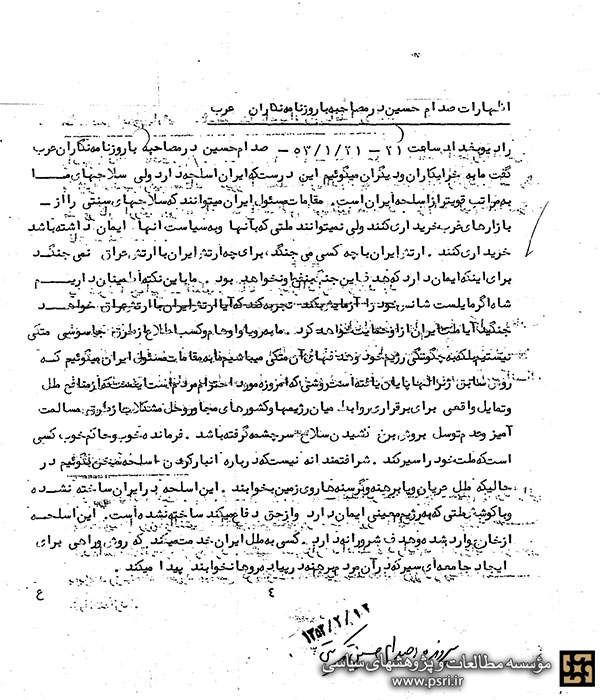 اظهارات صدام حسین در مصاحبه با روزنامه نگاران عرب
رادیو بغداد ساعت ۲۱ - ۵۳/۱/۲۱ - صدام حسین در مصاحبه با روزنامه نگاران عرب
گفت ما به خرابکاران و دیگران میگوئیم این درست که ایران اسلحه دارد ولی سلاحهای مـا
به مراتب قویتر از اسلحه ایران است. مقامات مسئول ایران میتوانند که سلاحهای سنتی را از -
بازارهای غرب خریداری کنند ولی نمیتوانند ملتی که بآنها و به سیاست آنها ایمان داشته باشد
خریداری کنند. ارتش ایران با چه کسی می جنگد برای چه ارتش ایران با ارتش عراق نمی جنگد
برای اینکه ایمان دارد که هدف از این جنگ و نخواهد بود. ما باین نکته اطمینان داریـم
شاه اگر مایلست شانس خود را آزمایش بکند تجربه کند که آیا ارتش ایران با ارتش عراق خواهد
جنگید آیا ملت ایران از او حمایت خواهد کرد. ما به رویا و اوهام و کسب اطلاع از طریق جاسوسی متکی
نیستیم بلکه به چگونگی رژیم خود و هدفهای آن متکی میباشیم ما به مقامات مسئول ایران میگوئیم کـه
روش سابق ژنرالها پایان یافته است روشی که امروزه مورد احترام مردم است اینست که از منافع ملل
و تمایل واقعی برای برقراری روابط میان رژیمها و کشورهای مجاور و حل مشکلات از طریق مسالمت
آمیز و عدم توسل بروش برخ کشیدن سلاح سرچشمه گرفته باشد. فرمانده خوب و حاکم خوب کسی
است که ملت خود را سیر کند. شرافتمندانه نیست که درباره انبار کردن اسلحه سخن بگوئیم در
حالیکه ملل عریان و پا برهنه و گرسنه ها روی زمین بخوابند. این اسلحه در ایران ساخته نشده
و با کوشش ملتی که به رژیم معینی ایمان دارد و از حق دفاع میکند ساخته نشده است. این اسلحـه
از خارج وارد شده و هدف شرورانه دارد. کسی به ملل ایران خدمت میکند که روش و راهی برای
ایجاد جامعه ای سیر که در آن مردم برهنه در پیاده روها نخوابند پیدا میکند.
ع ٤
۱۳۵۳/۲/۱۲
صدام حسین
مؤسسه مطالعات و پژوهشهای سیاسی
www.psri.ir